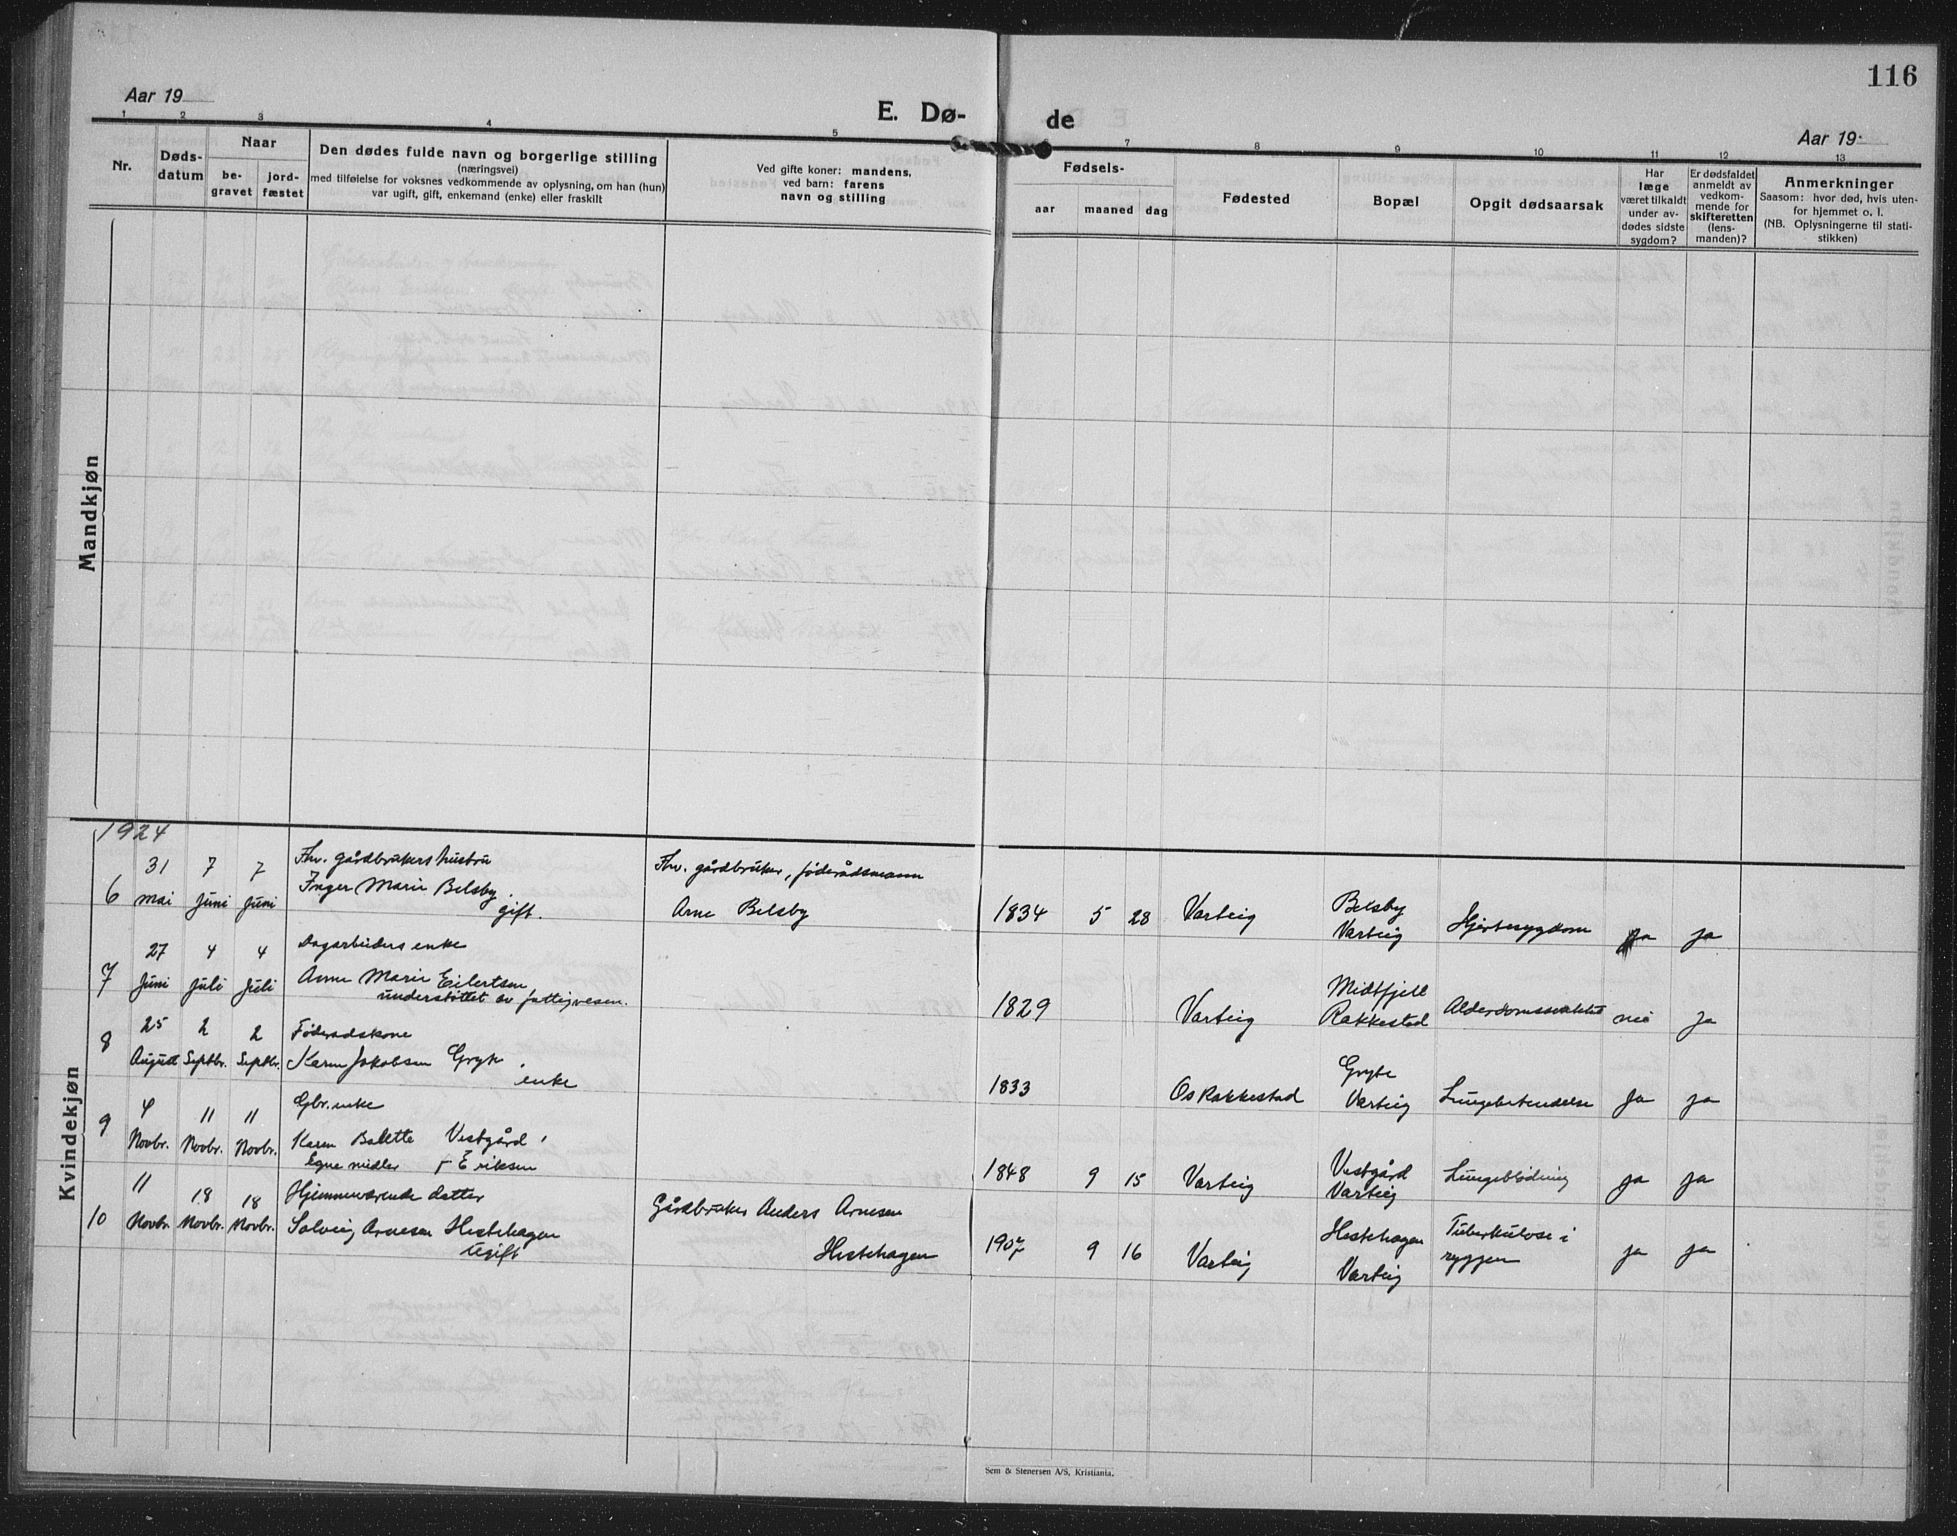 116
Aar 19
E. Dø-
de
Aar 19
1 2 3 4 5 7 8 9 10 11 12 13
Nr.
Døds-
datum
Naar
be-
gravet
jord-
fæstet
Den dødes fulde navn og borgerlige stilling
(næringsvei)
med tilføielse for voksnes vedkommende av oplysning, om han (hun)
var ugift, gift, enkemand (enke) eller fraskilt
Ved gifte koner: mandens,
ved barn: farens
navn og stilling
Fødsels-
aar maaned dag
Fødested
Bopæl
Opgit dødsaarsak
Har
læge
været tilkaldt
under av-
dødes sidste
sygdom?
Er dødsfaldet
anmeldt av
vedkom-
mende for
skifteretten
(lens-
manden)?
Anmerkninger
Saasom: hvor død, hvis uten-
for hjemmet o. l.
(NB. Oplysningerne til stati-
stikken)
Mandkjøn
Kvindekjøn
1924
31 7 7 Fhv. gårdbrukers hustru Fhv. gårdbruker, føderådsmann
6 mai Juni Juni Inger Marie Belsby. gift. Arne Belsby 1834 5 28 Varteig Belsby Varteig Hjertesygdom ja ja
27 4 4 Dagarbeiders enke
7 Juni Juli Juli Anne Marie Eilertsen
understøttet av fattigvesen. 1829 Varteig Midtfjell Rakkestad Alderdomssvakhet nei ja
25 2 2 Føderadskone
8 August Septbr. Septbr. Karen Jakobsen Gryte enke 1833 Os Rakkestad Gryte Varteig Lungebetendelse ja ja
4 11 11 Gbr. enke
9 Novbr. Novbr. Novbr. Karen Bolette Vestgård
Egne midler f Eriksen 1848 9 15 Varteig Vestgård Varteig Lungeblødning ja ja
11 18 18 Hjemmeværende datter Gårdbruker Anders Arnesen
10 Novbr. Novbr. Novbr. Solveig Arnesen Hestehagen
Ugift Hestehagen 1907 9 16 Varteig Hestehagen Varteig Tuberkulose i
ryggen ja ja
Sem & Stenersen A/S, Kristiania.